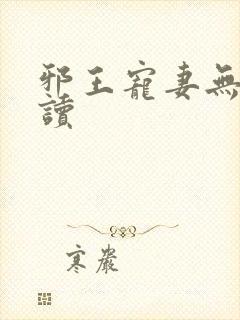 邪王寵妻無
讀
寒嚴